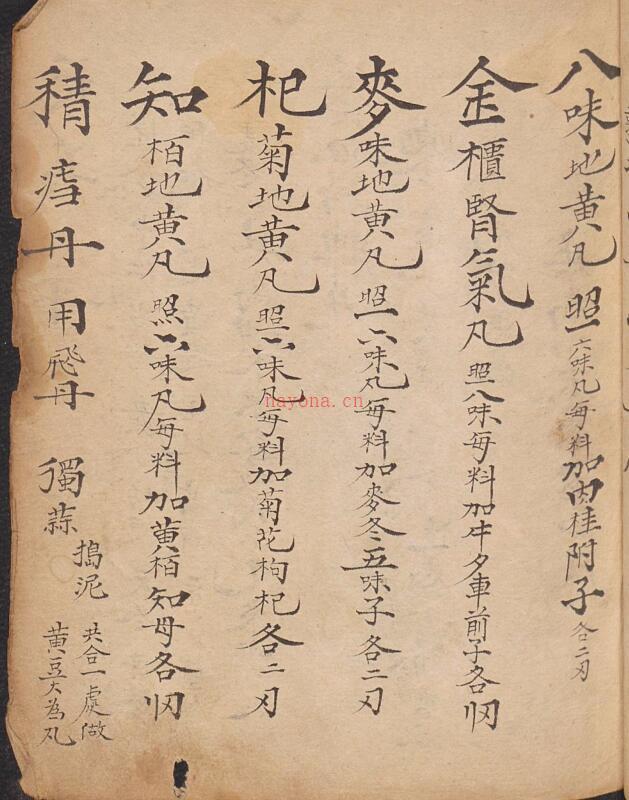 八味地黃凡 照六味凡每料加肉桂附子各二刃
金櫃腎氣凡 照八味每料加牛夕車前子各
麥味地黃凡 照六味凡每料加麥冬五味子各二刃
杞菊地黃凡 照六味凡每料加菊花枸杞各二刃
知栢地黃凡 照六味凡每料加黃栢知母各
丹 用飛丹 獨蒜搗泥 共合一處做黃豆大為凡
nayona.cn